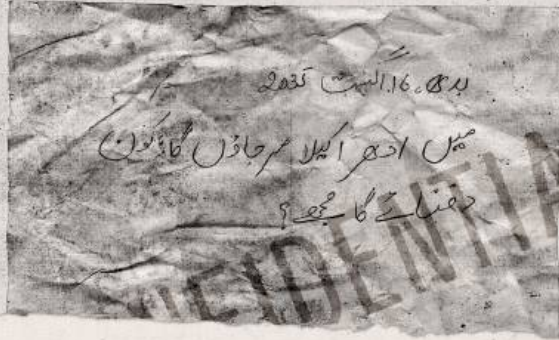 بدھ، 16 اگست 2023
میں ادھر اکیلا مر جاؤں گا، کون
دفنائے گا مجھے؟
FIDENTIA